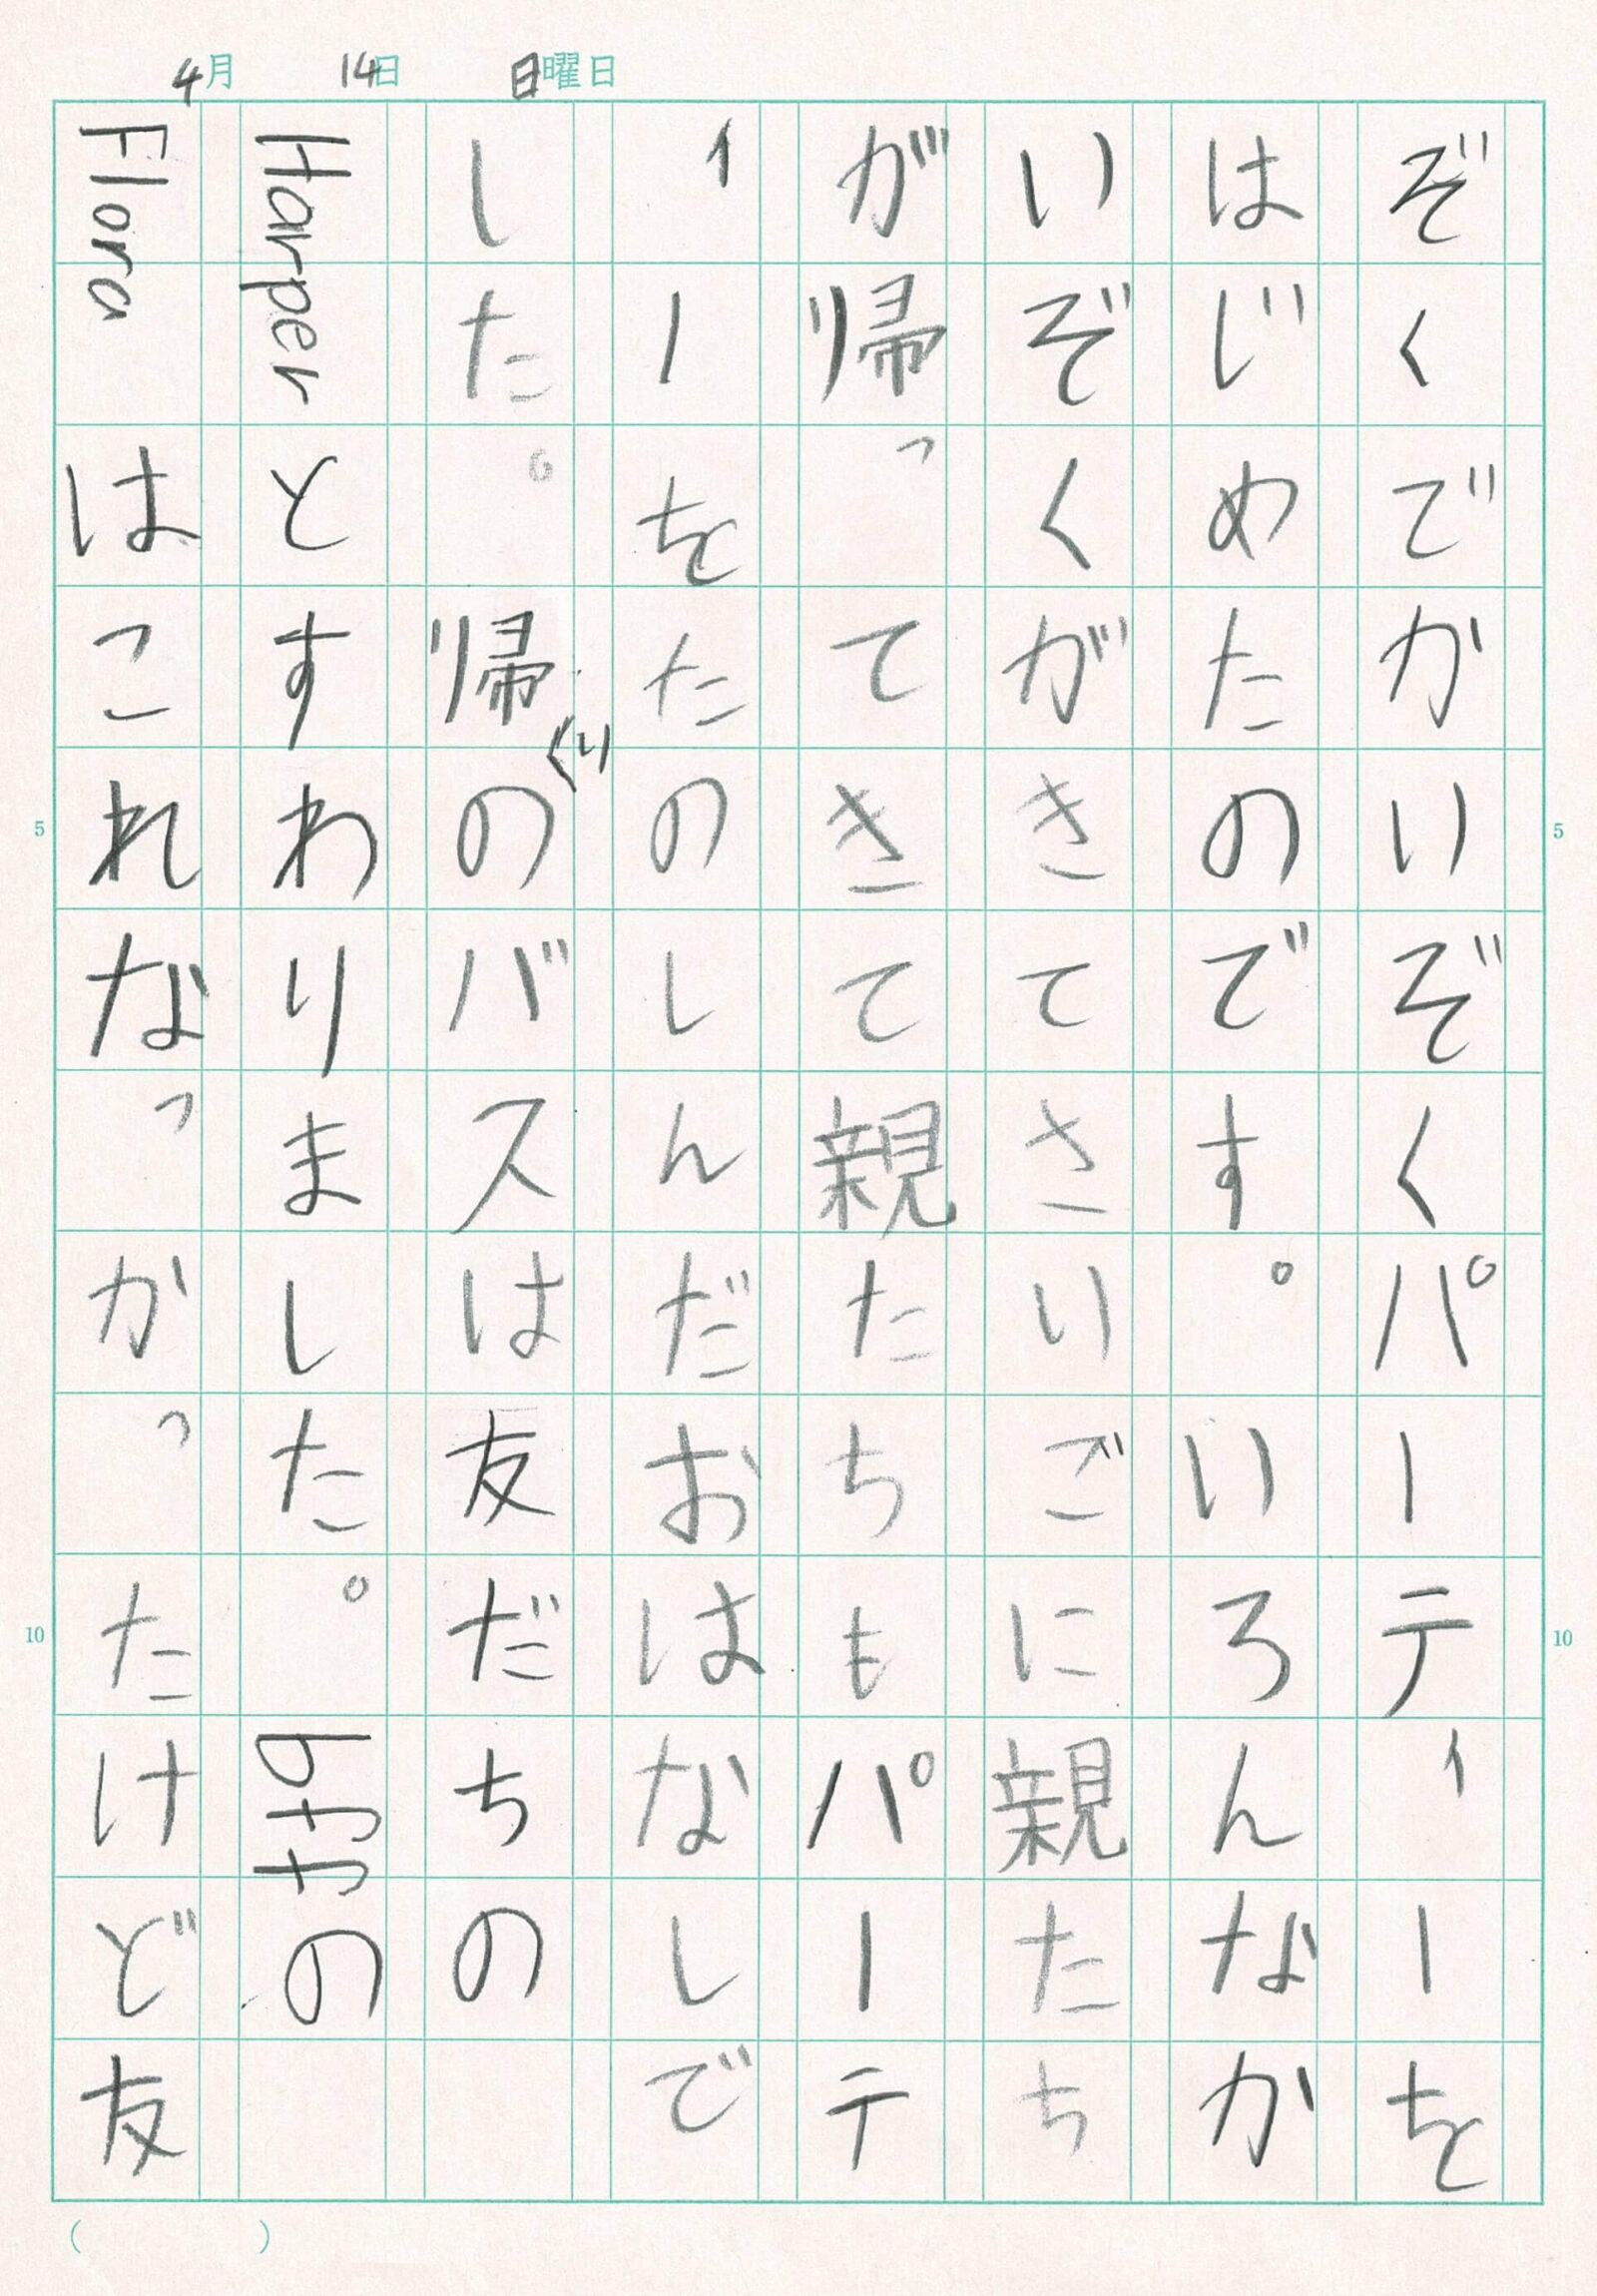 4月 14日 日曜日
ぞくでかいぞくパーティーを
はじめたのです。いろんなか
いぞくがきてさいごに親たち
が帰ってきて親たちもパーテ
ィーをたのしんだおはなしで
した。帰りのバスは友だちの
Harperとすわりました。bffの
Floraはこれなかったけど友
5
10
5
10
( )